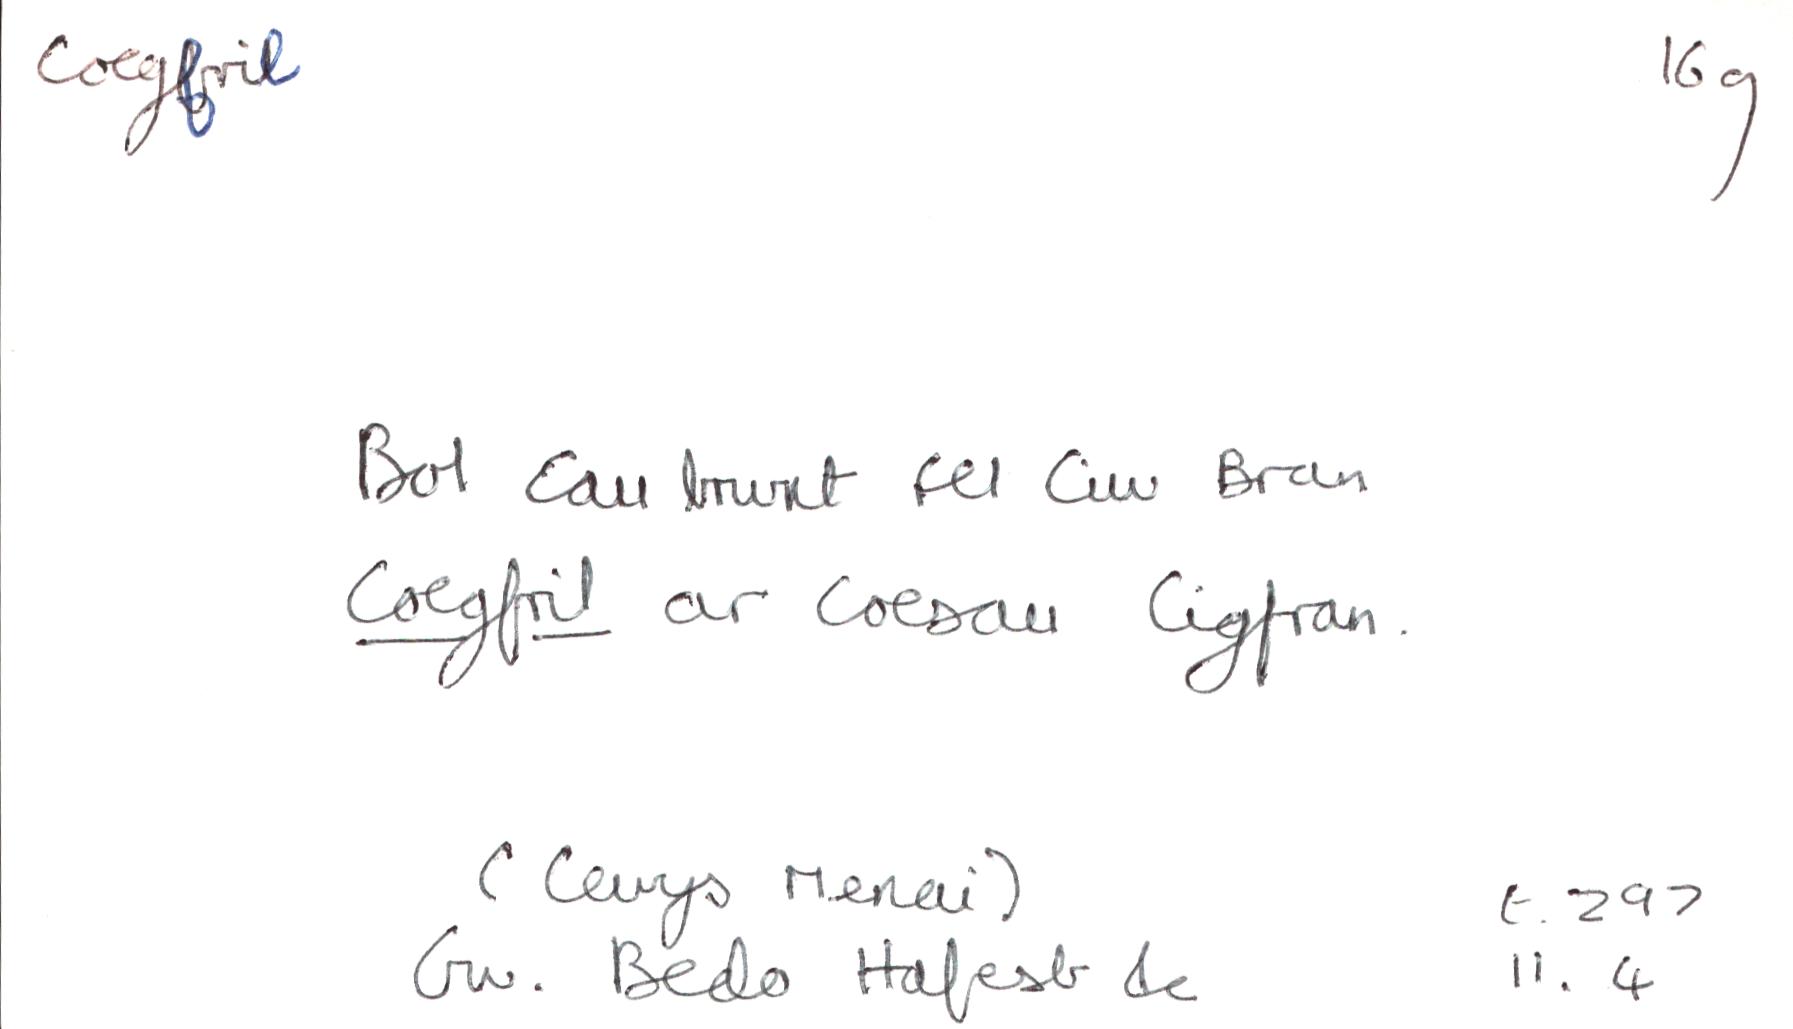 Coegfril 16g
Bol Cau brwnt fel Ciw Bran
Coegfril ar Coesau Cigfran.
(Lewys Menai)
Gw. Bedo Hafesb &c
t. 297
ll. 4